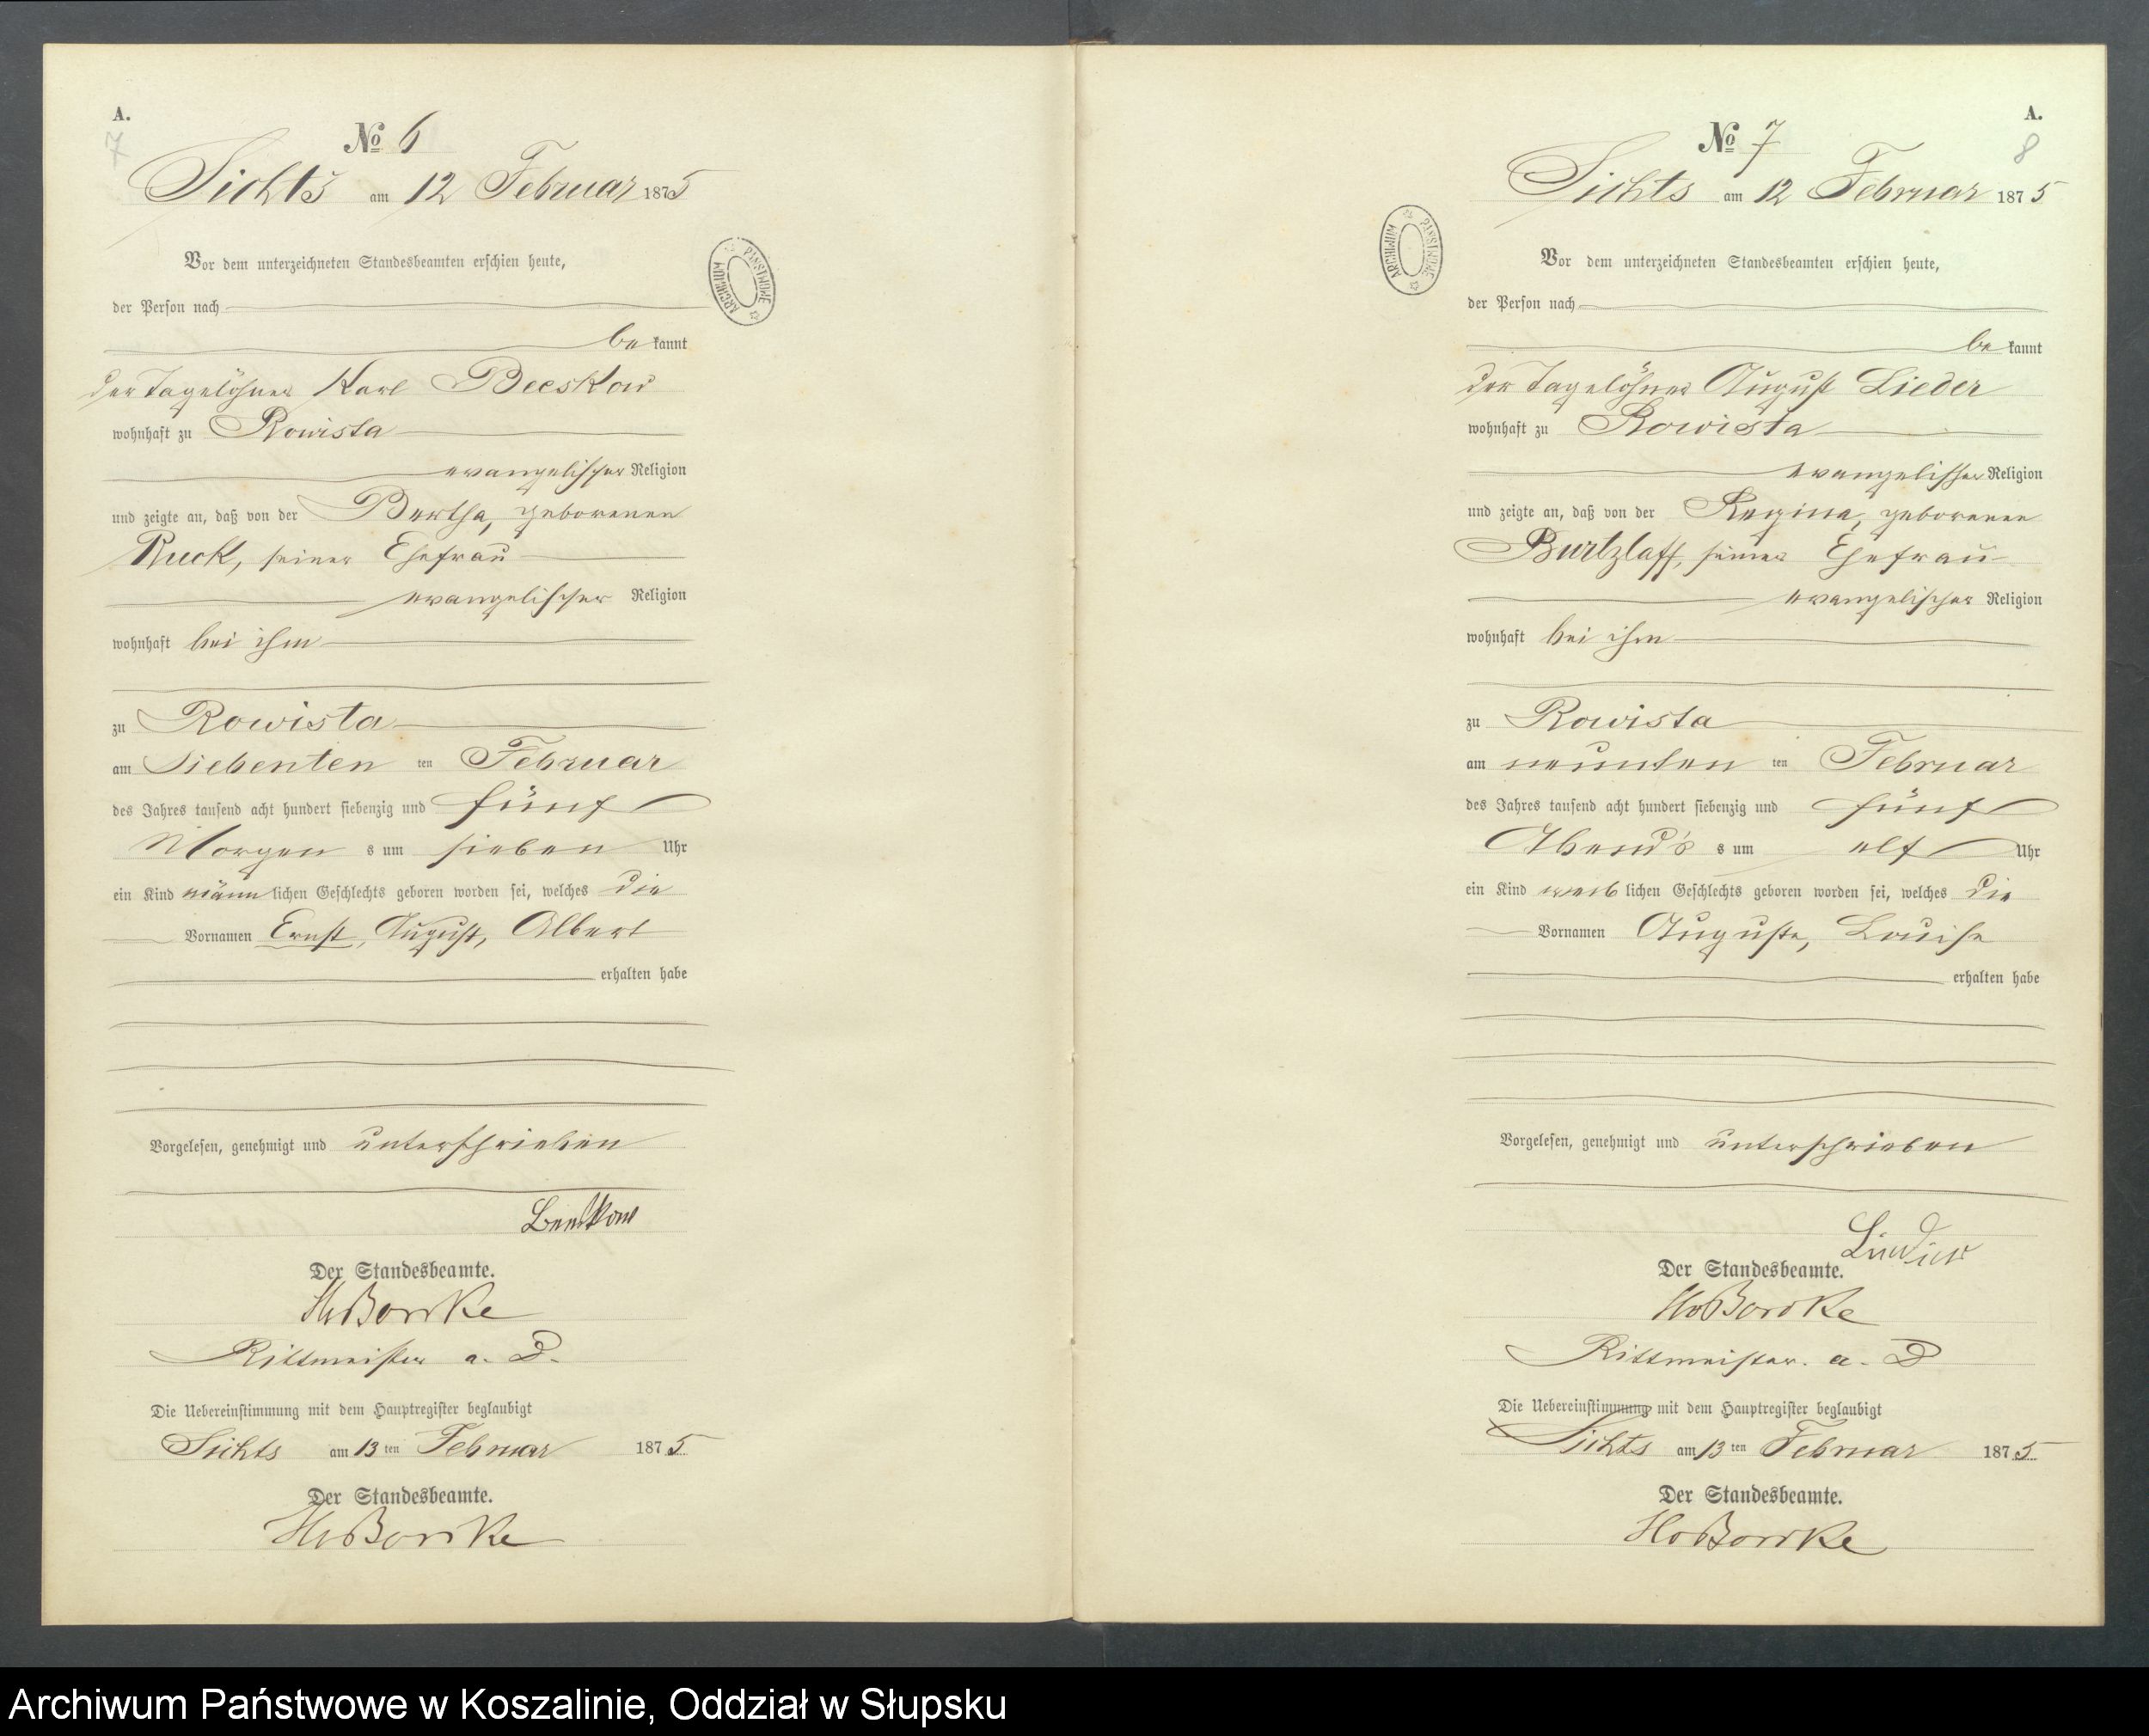 A.
7
№ 6
Sichts am 12 Februar 1875
Vor dem unterzeichneten Standesbeamten erschien heute,
der Person nach
be kannt
der Tagelöhner Karl Beeskow
wohnhaft zu Rowista
evangelischer Religion
und zeigte an, daß von der Bertha, geborenen
Ruck, seiner Ehefrau
evangelischer Religion
wohnhaft bei ihm
zu Rowista
am Siebenten ten Februar
des Jahres tausend acht hundert siebenzig und fünf
Morgen s um sieben Uhr
ein Kind männ lichen Geschlechts geboren worden sei, welches die
Vornamen Ernst, August, Albert
erhalten habe
Vorgelesen, genehmigt und unterschrieben
Beeskow
Der Standesbeamte.
HvBorcke
Rittmeister a. D.
Die Uebereinstimmung mit dem Hauptregister beglaubigt
Sichts am 13 ten Februar 1875
Der Standesbeamte.
HvBorcke
ARCHIWUM PAŃSTWOWE
A.
8
№ 7
Sichts am 12 Februar 1875
Vor dem unterzeichneten Standesbeamten erschien heute,
der Person nach
be kannt
der Tagelöhner August Lieder
wohnhaft zu Rowista
evangelischer Religion
und zeigte an, daß von der Regina, geborenen
Burtzlaff, seiner Ehefrau
evangelischer Religion
wohnhaft bei ihm
zu Rowista
am neunten ten Februar
des Jahres tausend acht hundert siebenzig und fünf
Abend's s um elf Uhr
ein Kind weib lichen Geschlechts geboren worden sei, welches die
Vornamen Auguste, Louise
erhalten habe
Vorgelesen, genehmigt und unterschrieben
Der Standesbeamte.
HvBorcke
Rittmeister. a. D
Die Uebereinstimmung mit dem Hauptregister beglaubigt
Sichts am 13 ten Februar 1875
Der Standesbeamte.
HvBorcke
ARCHIWUM PAŃSTWOWE
Archiwum Państwowe w Koszalinie, Oddział w Słupsku